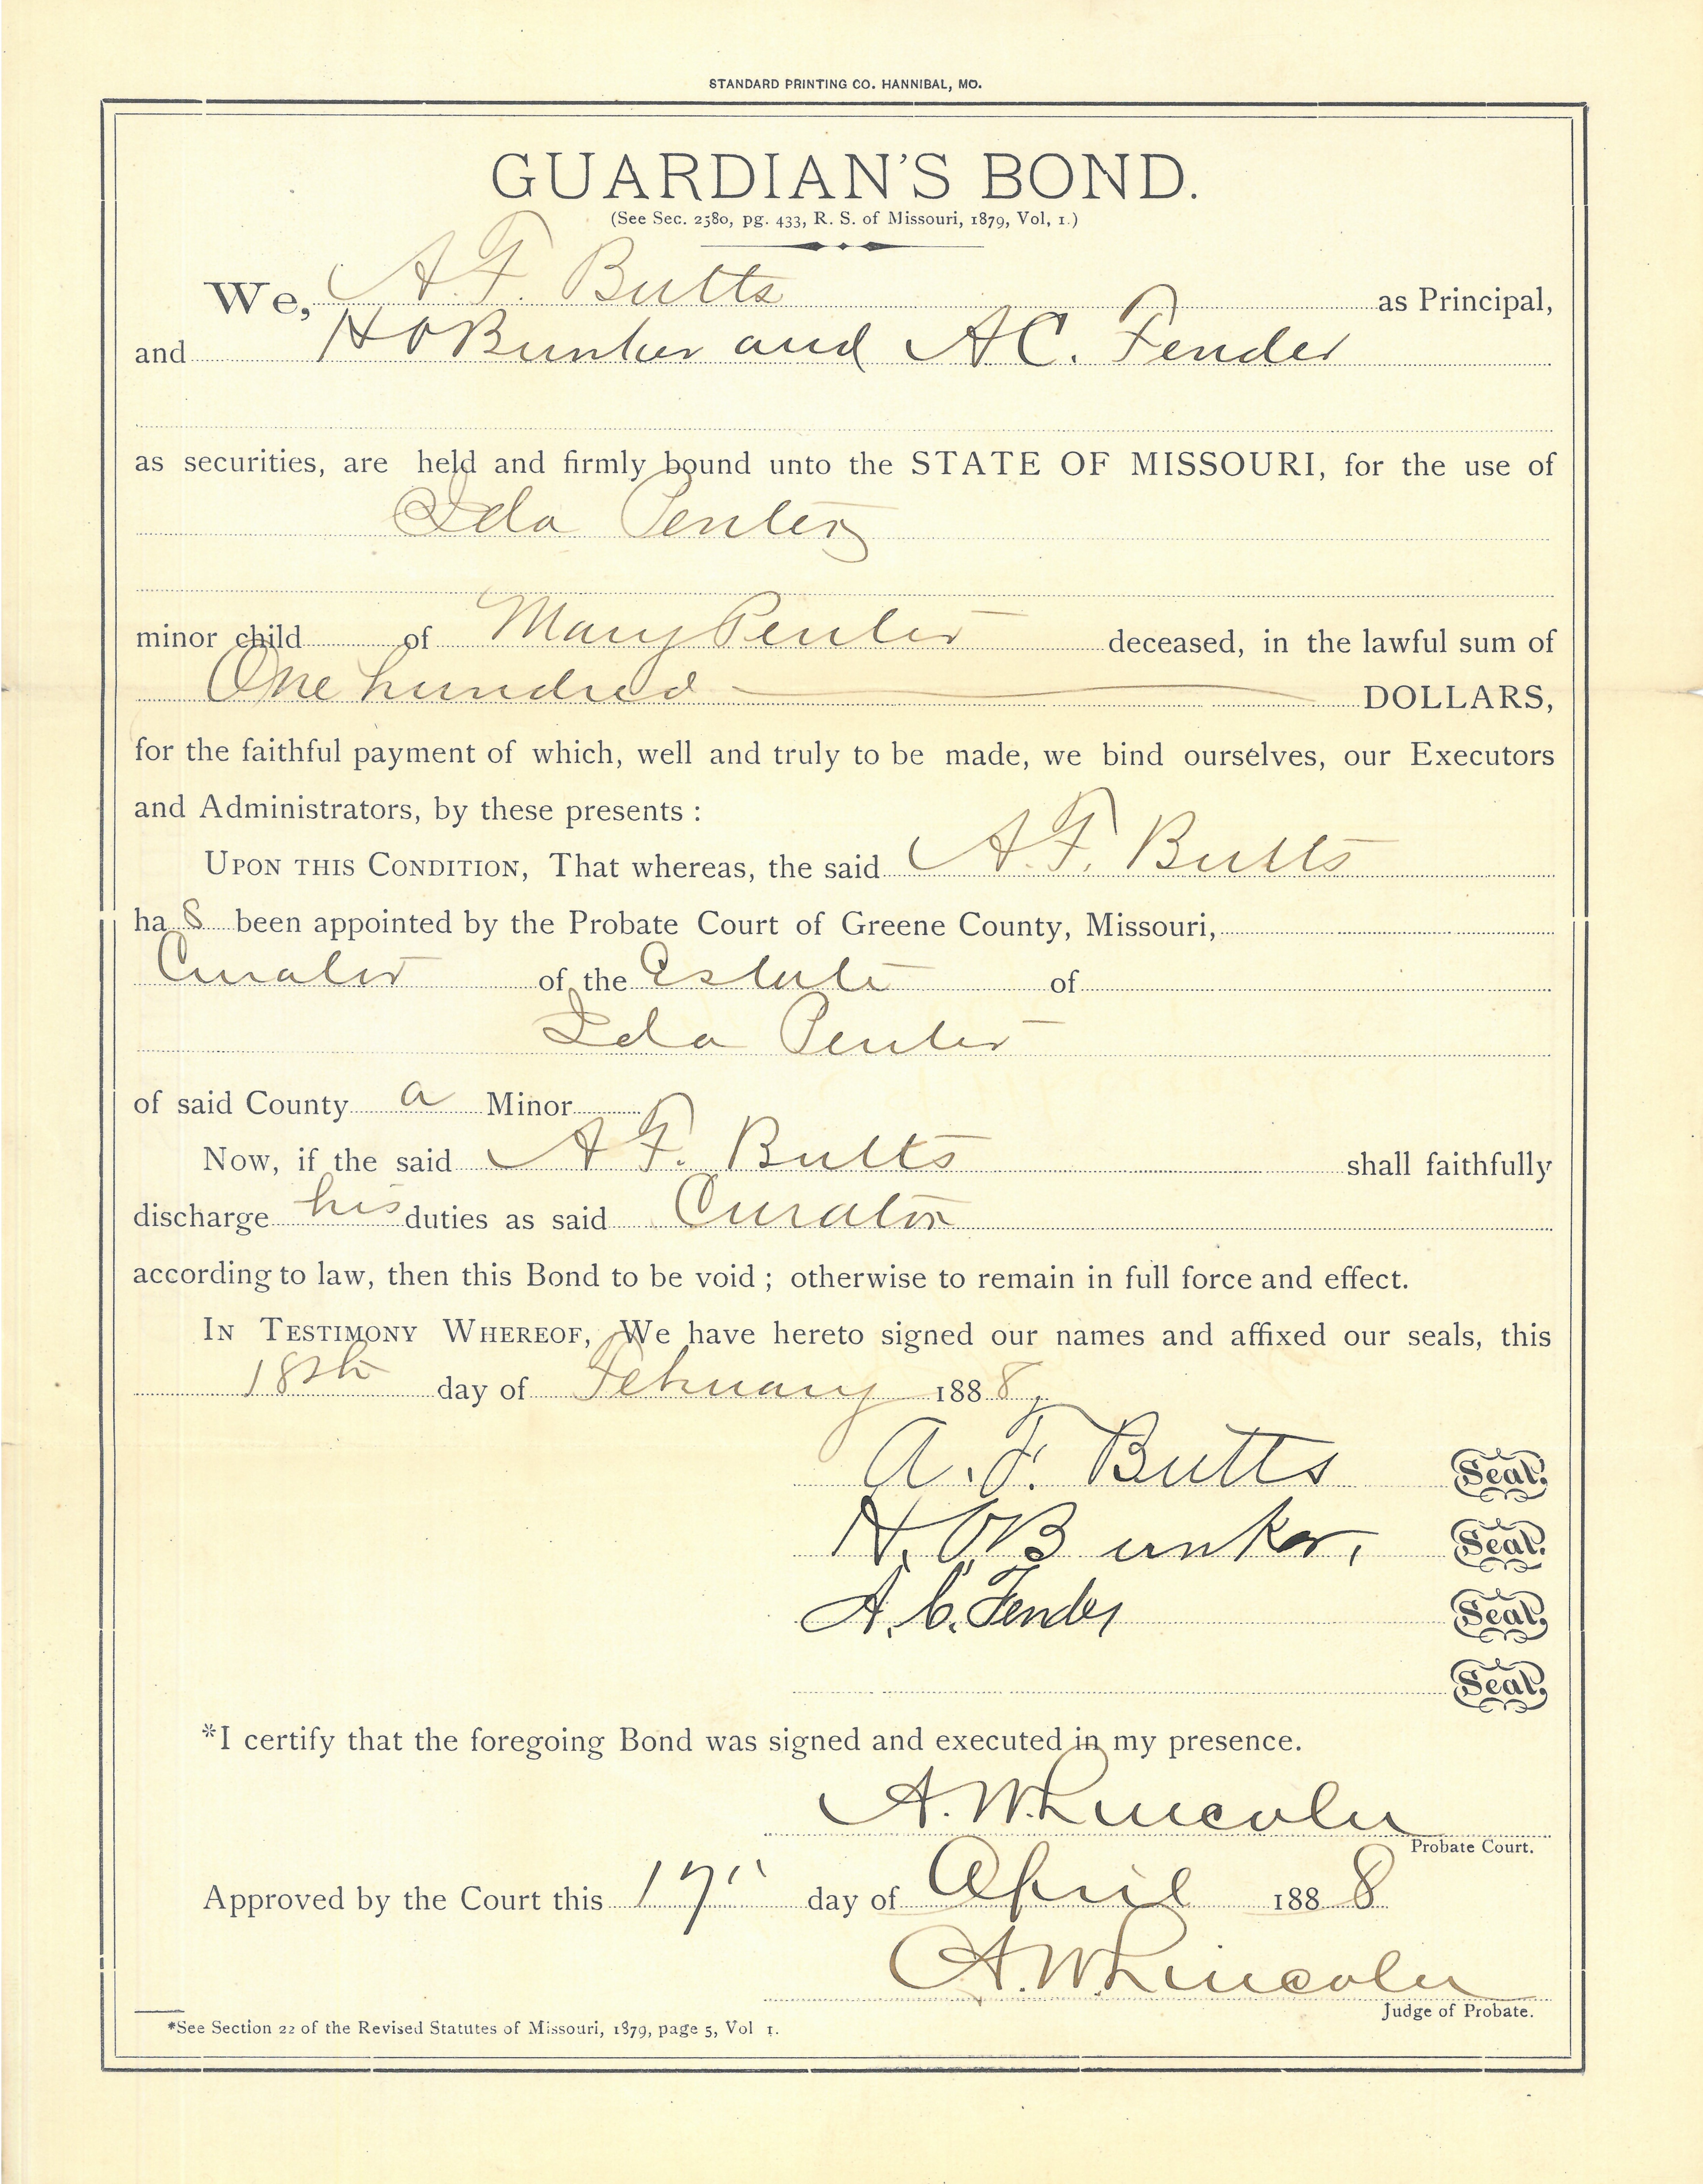 STANDARD PRINTING CO. HANNIBAL, MO.
GUARDIAN'S BOND.
(See Sec. 2580, pg. 433, R. S. of Missouri, 1879, Vol, 1.)
We, A. F. Butts as Principal,
and H O Bunker and A C. Fender
as securities, are held and firmly bound unto the STATE OF MISSOURI, for the use of
Ida Penter
minor child of Mary Penter deceased, in the lawful sum of
One hundred DOLLARS,
for the faithful payment of which, well and truly to be made, we bind ourselves, our Executors
and Administrators, by these presents :
UPON THIS CONDITION, That whereas, the said A. F. Butts
has been appointed by the Probate Court of Greene County, Missouri,
Curator of the Estate of
Ida Penter
of said County a Minor
Now, if the said A F. Butts shall faithfully
discharge his duties as said Curator
according to law, then this Bond to be void ; otherwise to remain in full force and effect.
IN TESTIMONY WHEREOF, We have hereto signed our names and affixed our seals, this
18th day of February 1888.
A. F. Butts Seal.
H. O Bunker, Seal.
A. C. Fender Seal.
Seal.
*I certify that the foregoing Bond was signed and executed in my presence.
A. W. Lincoln
Probate Court.
Approved by the Court this 17" day of April 1888
A. W. Lincoln
Judge of Probate.
*See Section 22 of the Revised Statutes of Missouri, 1879, page 5, Vol 1.